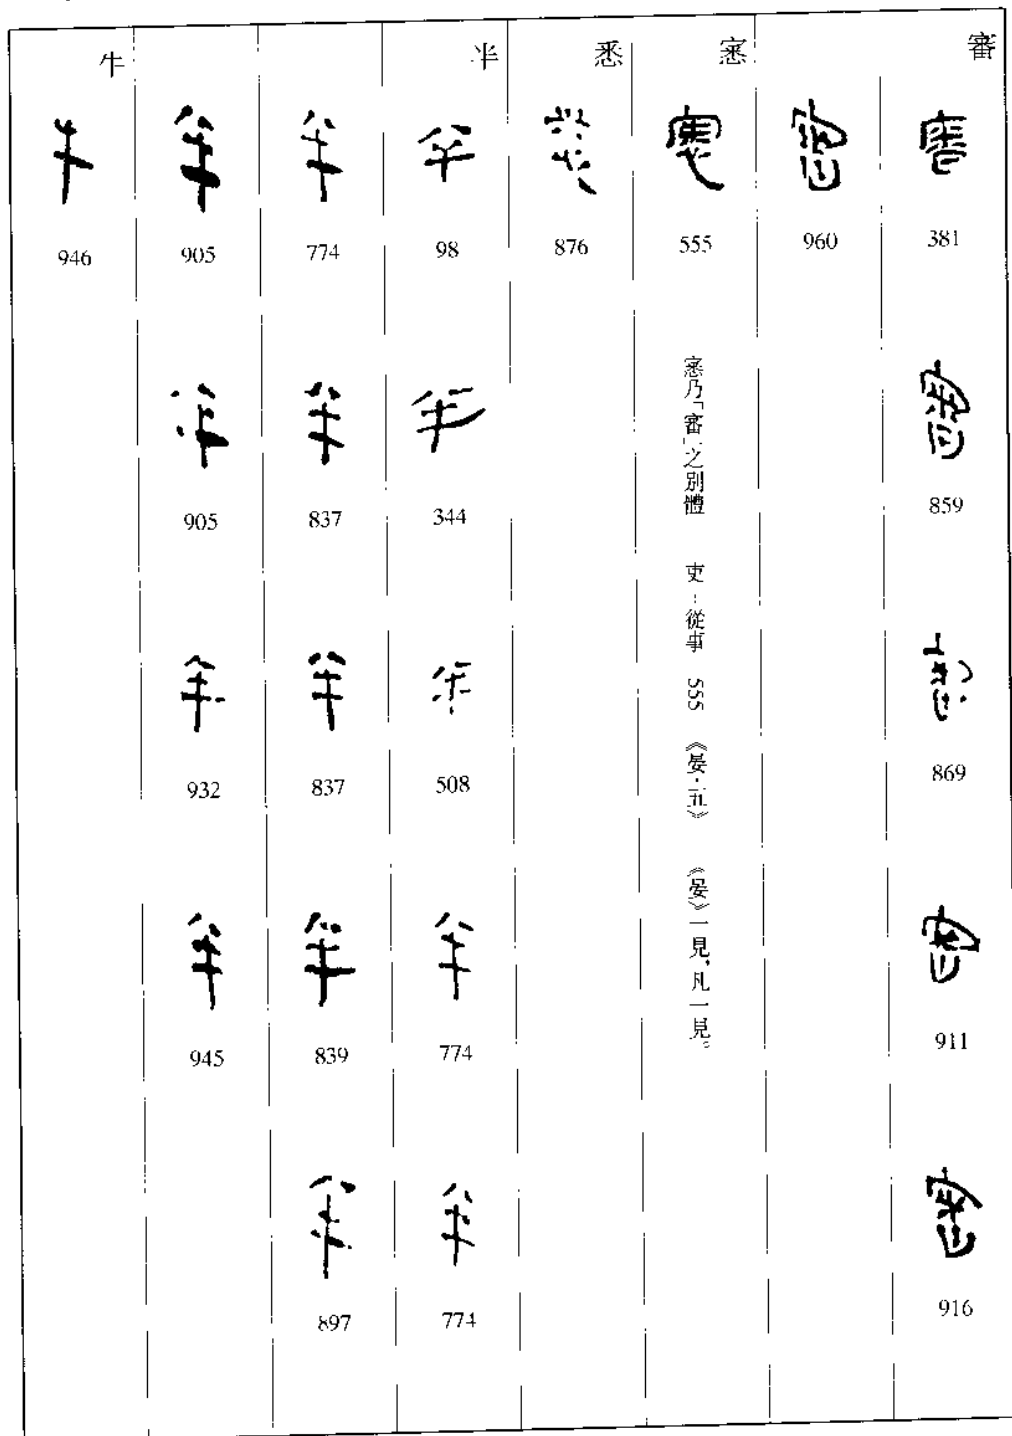 審
381
859
869
911
916
960
555
乃「審」之別體 吏-從事 555 《晏·五》 《晏》一見，凡一見。
悉
876
半
98
344
508
774
774
774
837
837
839
897
905
905
932
945
牛
946